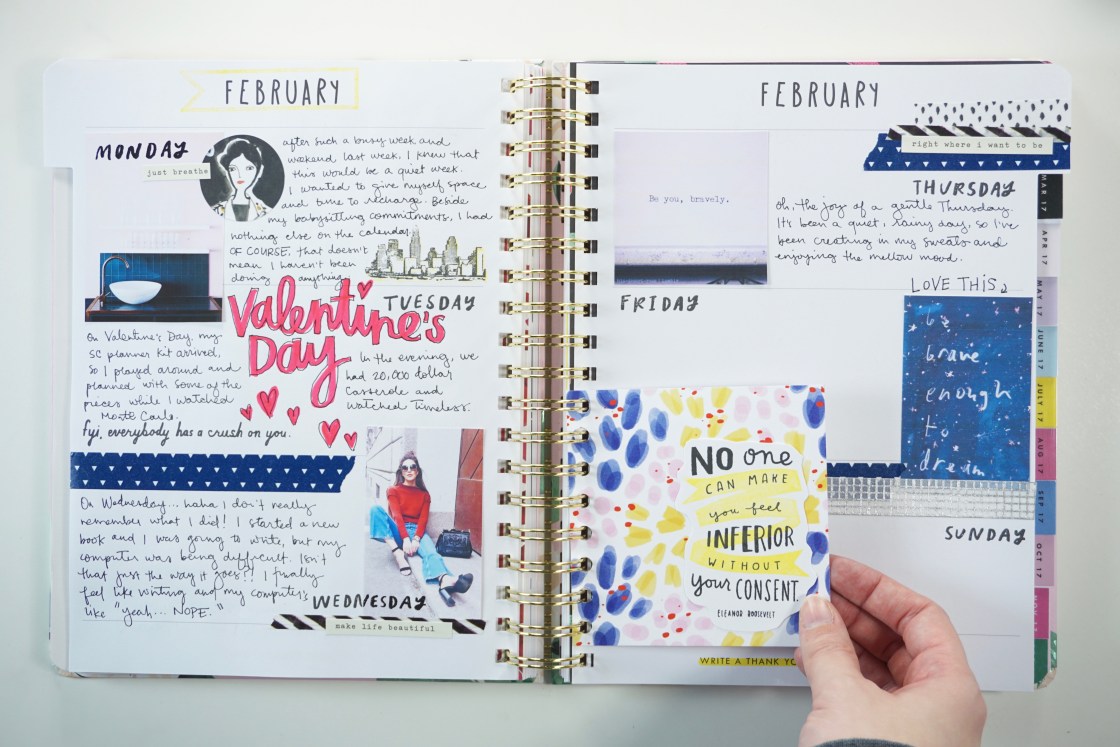 FEBRUARY
MONDAY
just breathe
after such a busy week and
weekend last week, I knew that
this would be a quiet week.
I wanted to give myself space
and time to recharge. Beside
my babysitting commitments, I had
nothing else on the calendar.
OF COURSE, that doesn't
mean I haven't been
doing anything
Valentine's
Day
TUESDAY
On Valentine's Day, my
SC planner kit arrived,
so I played around and
planned with some of the
pieces while I watched
Monte Carlo.
fyi, everybody has a crush on you.
In the evening, we
had 20,000 dollar
casserole and
watched Timeless.
On Wednesday... haha I don't really
remember what I did! I started a new
book and I was going to write, but my
computer was being difficult. Isn't
that just the way it goes?! I finally
feel like writing and my computer's
like "Yeah... NOPE."
WEDNESDAY
make life beautiful
FEBRUARY
right where i want to be
Be you, bravely.
THURSDAY
Oh, the joy of a gentle Thursday.
It's been a quiet, rainy day, so I've
been creating in my sweats and
enjoying the mellow mood.
FRIDAY
LOVE THIS
be
brave
enough
to
dream
NO one
CAN MAKE
you feel
INFERIOR
WITHOUT
your CONSENT.
ELEANOR ROOSEVELT
SUNDAY
WRITE A THANK YO
MAR 17
APR 17
MAY 17
JUNE 17
JULY 17
AUG 17
SEP 17
OCT 17